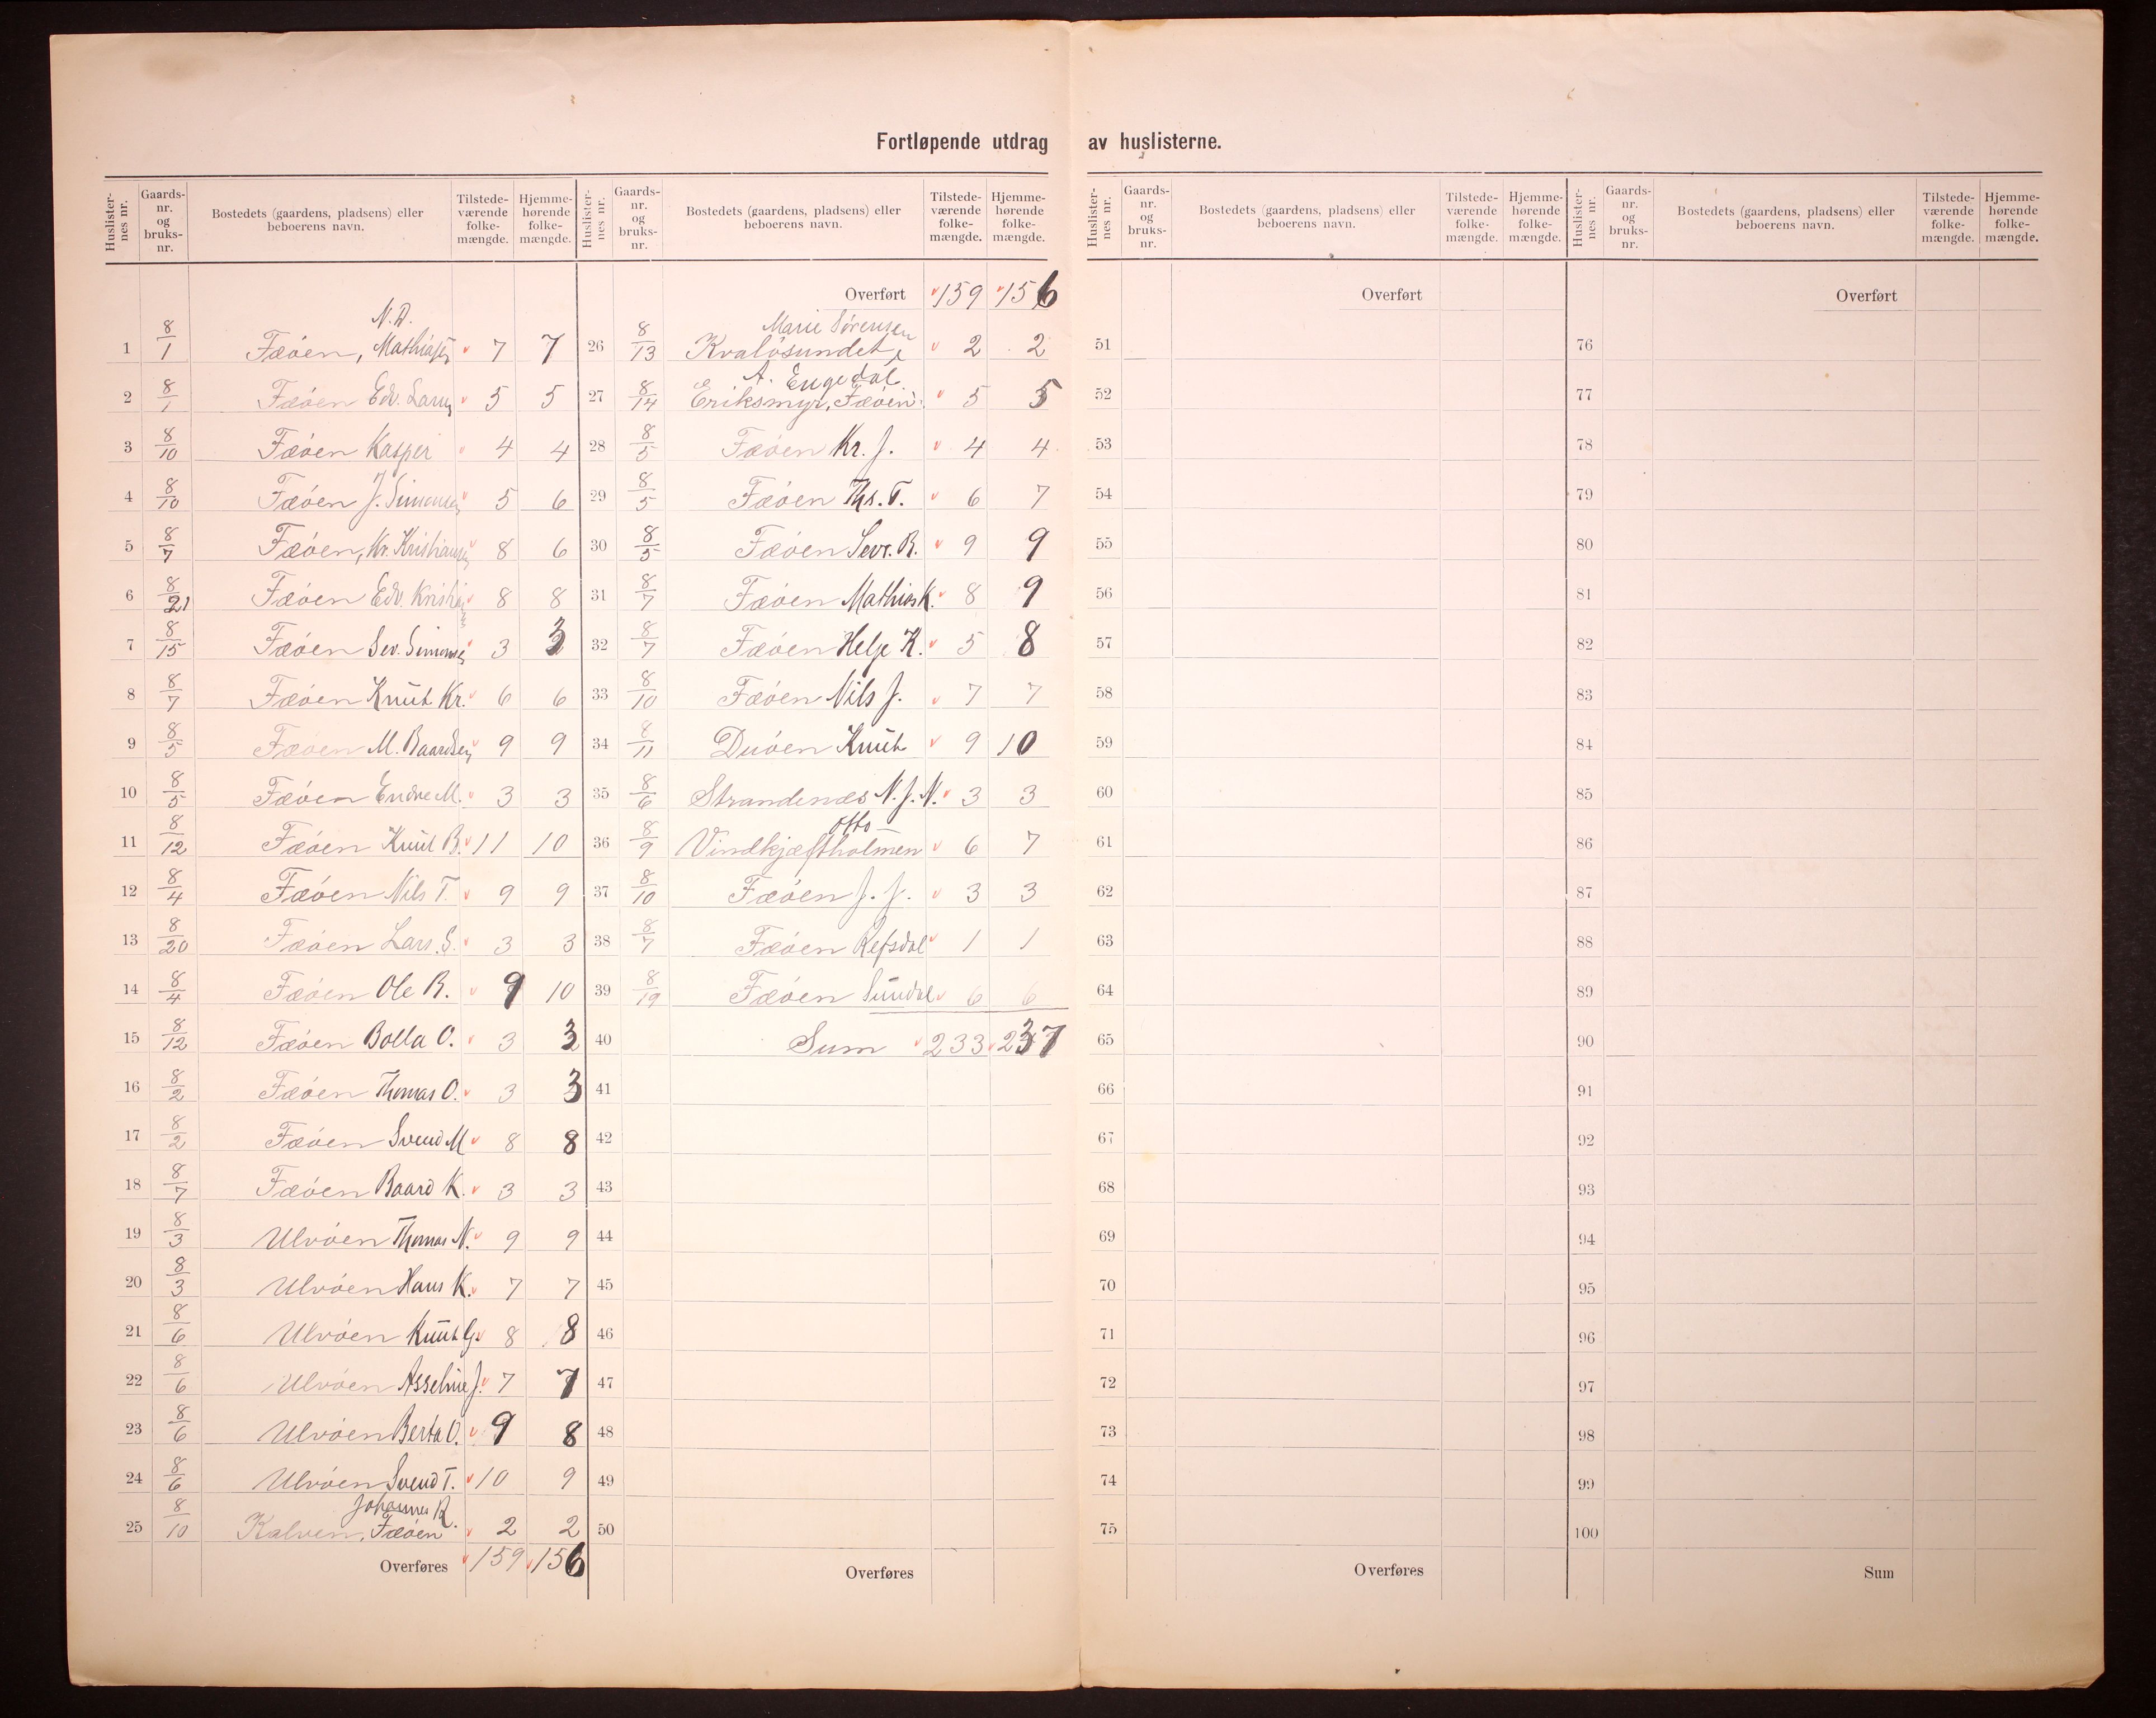 Fortløpende utdrag av huslisterne.
Huslister-nes nr. Gaards-nr. og bruks-nr. Bostedets (gaardens, pladsens) eller beboerens navn. Tilstede-værende folke-mængde. Hjemme-hørende folke-mængde.
1 8/1 Fæøen, N.D. Mathiasen 7 7
2 8/1 Fæøen Edv. Larsen 5 5
3 8/10 Fæøen Kasper 4 4
4 8/10 Fæøen J. Simonsen 5 6
5 8/7 Fæøen, Kr. Kristiansen 8 6
6 8/21 Fæøen Edv. 8 8
7 8/15 Fæøen Sev. Simonsen 3 3
8 8/7 Fæøen Knut Kr. 6 6
9 8/5 Fæøen M. Baardsen 9 9
10 8/5 Fæøen Endre M. 3 3
11 8/12 Fæøen Knut B. 11 10
12 8/4 Fæøen Nils T. 9 9
13 8/20 Fæøen Lars. S. 3 3
14 8/4 Fæøen Ole R. 9 10
15 8/12 Fæøen Bolla O. 3 3
16 8/2 Fæøen Thomas O. 3 3
17 8/2 Fæøen Svend M 8 8
18 8/7 Fæøen Baard K. 3 3
19 8/3 Ulvøen Thomas N. 9 9
20 8/3 Ulvøen Hans K. 7 7
21 8/6 Ulvøen Knut G. 8 8
22 8/6 Ulvøen Asseline J. 7 7
23 8/6 Ulvøen Berta O. 9 8
24 8/6 Ulvøen Svend T. 10 9
25 8/10 Kalven, Fæøen Johannes R. 2 2
Overføres 159 156
Huslister-nes nr. Gaards-nr. og bruks-nr. Bostedets (gaardens, pladsens) eller beboerens navn. Tilstede-værende folke-mængde. Hjemme-hørende folke-mængde.
Overført 159 156
26 8/13 Kvaløsundet, Marie Sørensen 2 2
27 8/14 Eriksmyr, Fæøen A. Engedal 5 5
28 8/5 Fæøen Kr. J. 4 4
29 8/5 Fæøen Ths. T. 6 7
30 8/5 Fæøen Sevr. B. 9 9
31 8/7 Fæøen Mathias K. 8 9
32 8/7 Fæøen Helge K. 5 8
33 8/10 Fæøen Nils J. 7 7
34 8/11 Duøen Knut 9 10
35 8/6 Strandenæs N. J. N. 3 3
36 8/9 Vindkjæftholmen Otto 6 7
37 8/10 Fæøen J. J. 3 3
38 8/7 Fæøen Refsdal 1 1
39 8/19 Fæøen Sundal 6 6
40 Sum 233 237
41
42
43
44
45
46
47
48
49
50
Overføres
Huslister-nes nr. Gaards-nr. og bruks-nr. Bostedets (gaardens, pladsens) eller beboerens navn. Tilstede-værende folke-mængde. Hjemme-hørende folke-mængde.
Overført
51
52
53
54
55
56
57
58
59
60
61
62
63
64
65
66
67
68
69
70
71
72
73
74
75
Overføres
Huslister-nes nr. Gaards-nr. og bruks-nr. Bostedets (gaardens, pladsens) eller beboerens navn. Tilstede-værende folke-mængde. Hjemme-hørende folke-mængde.
Overført
76
77
78
79
80
81
82
83
84
85
86
87
88
89
90
91
92
93
94
95
96
97
98
99
100
Sum